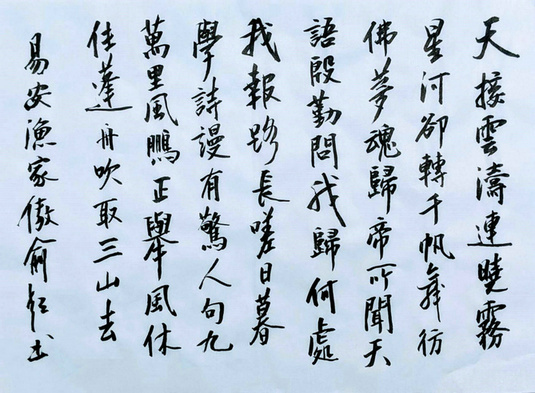 天接雲濤連曉霧
星河卻轉千帆舞彷
佛夢魂歸帝所聞天
語殷勤問我歸何處
我報路長嗟日暮
學詩謾有驚人句九
萬里風鵬正舉風休
住蓬舟吹取三山去
易安漁家傲俞書